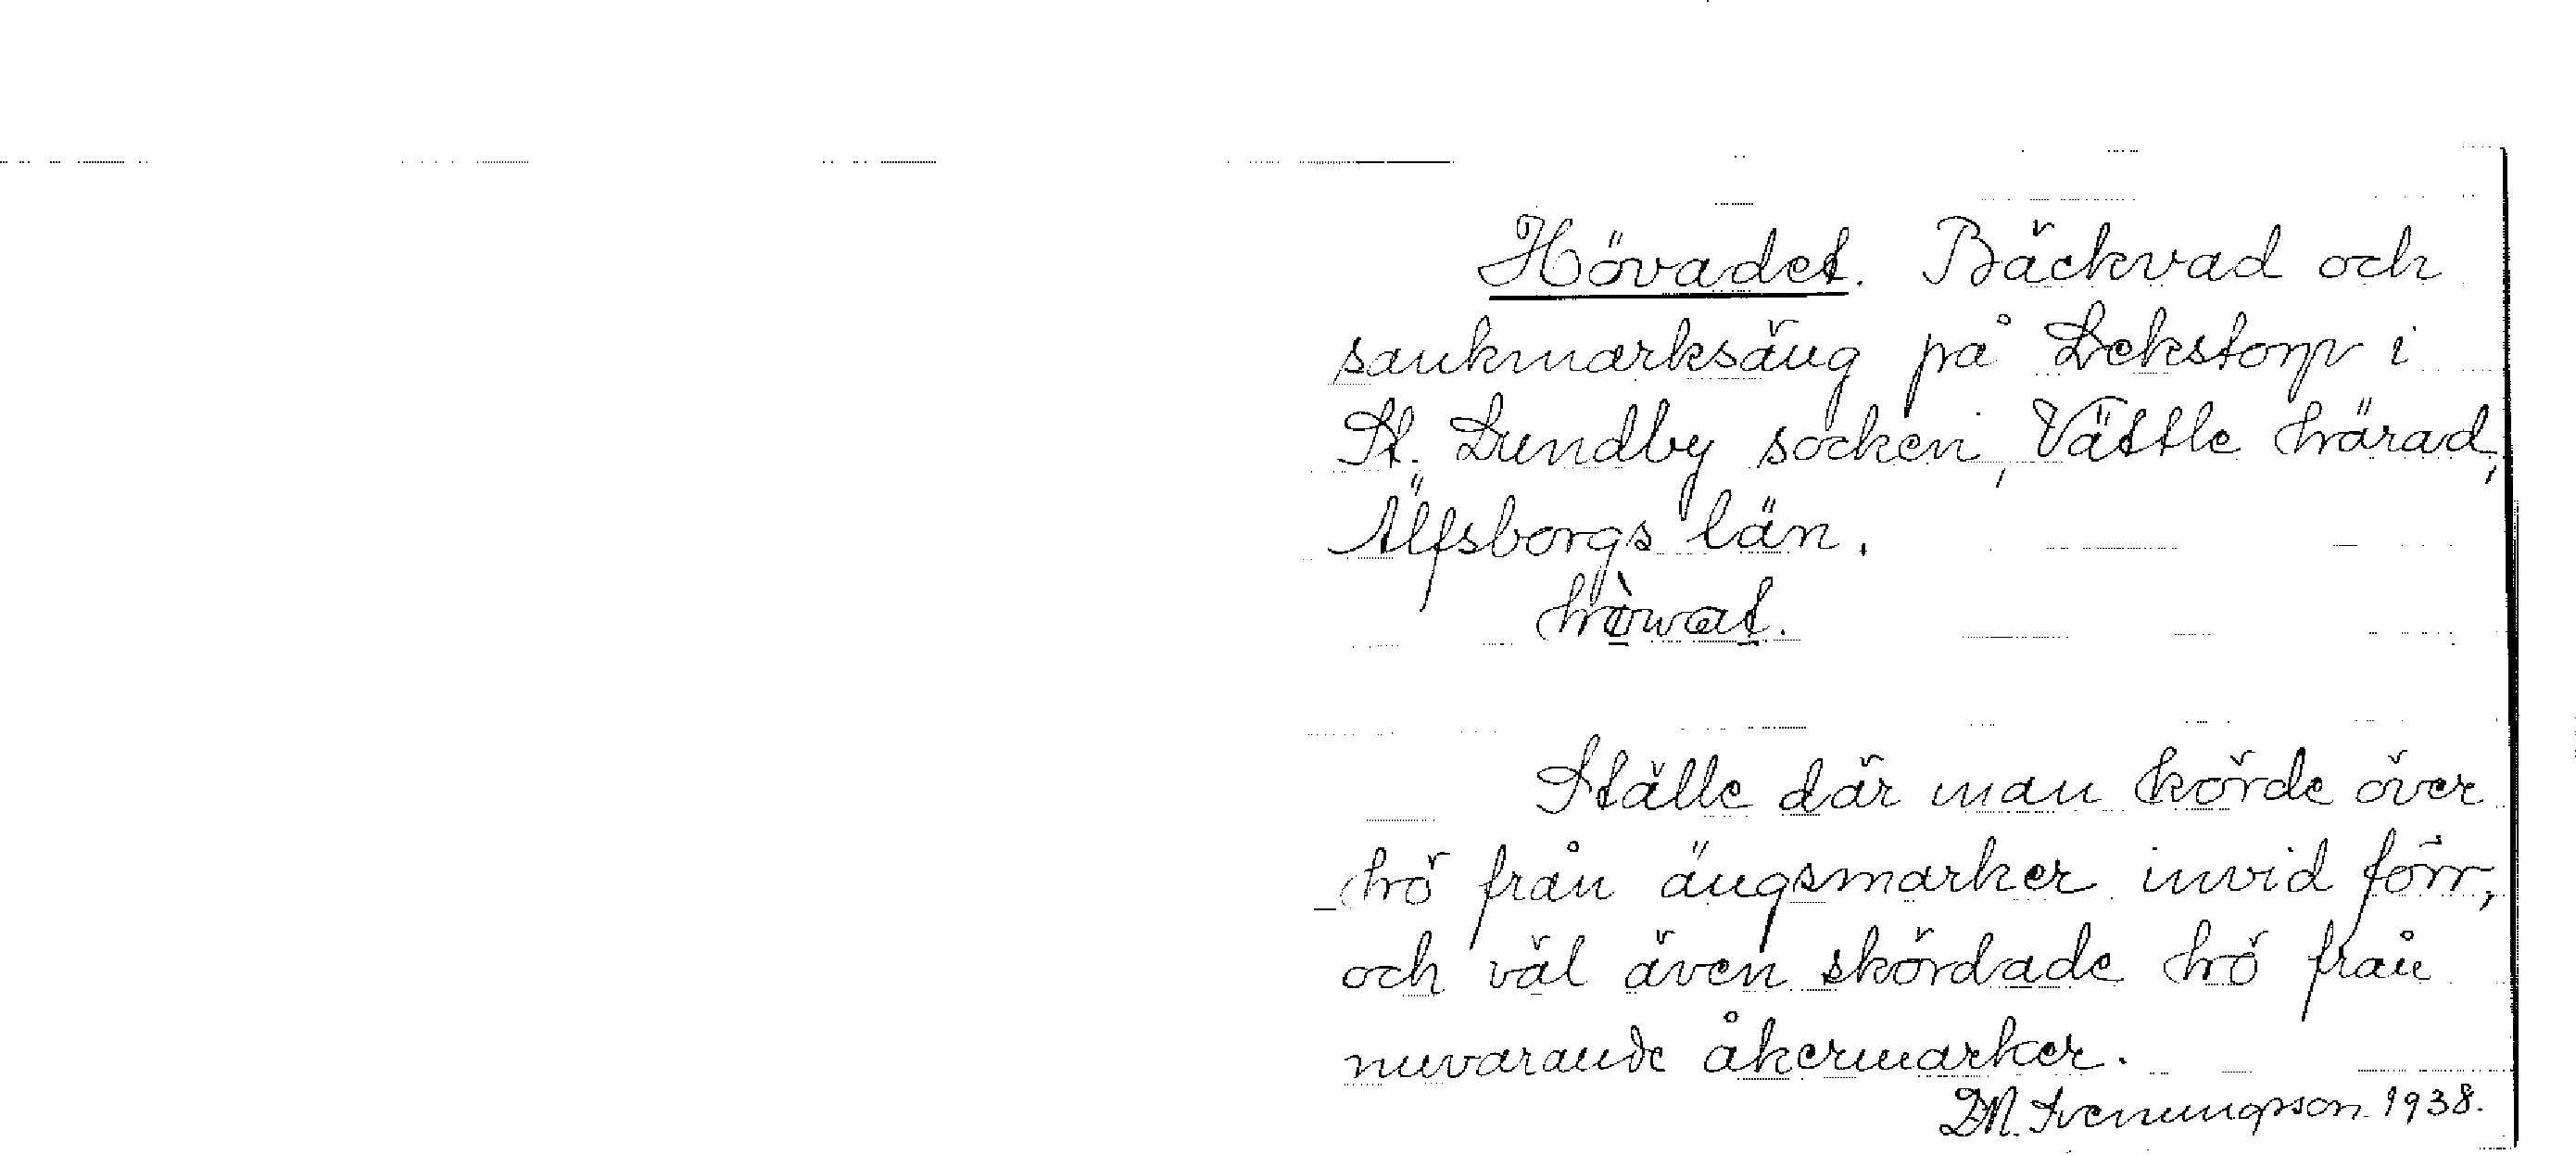 Hövadet. Bäckvad och
sankmarksäng på Lekstorp i
St. Lundby socken, Vättle härad,
Älfsborgs län.
hòwat.
Ställe där man körde över
hö från ängsmarker invid förr,
och väl även skördade hö från
nuvarande åkermarker.
D.N. Svenungsson 1938.